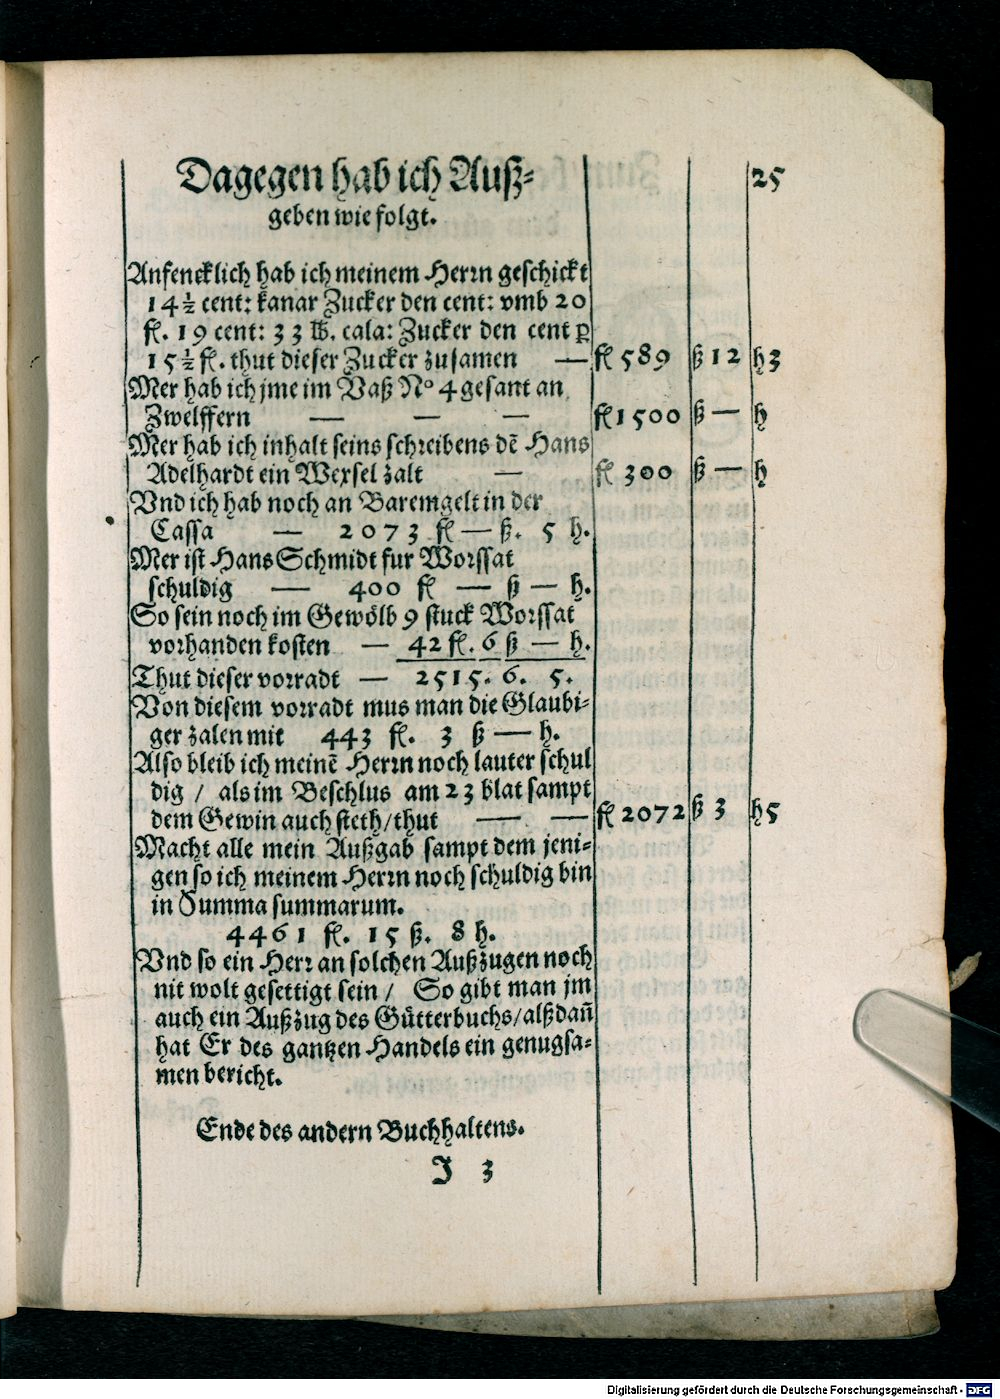 25
Dagegen hab ich Auß⸗
geben wie folgt.
Anfencklich hab ich meinem Herrn geschickt
14½ cent: kanar Zucker den cent: vmb 20
fl. 19 cent: 33 lb. cala: Zucker den cent ꝑ
15½ fl. thut dieser Zucker zusamen — fl 589 ß 12 h 3
Mer hab ich jme im Vaß No 4 gesant an
Zwelffern — — — fl 1500 ß — h
Mer hab ich inhalt seins schreibens dē Hans
Adelhardt ein Wexsel zalt — fl 300 ß — h
Vnd ich hab noch an Baremgelt in der
Cassa — 2073 fl — ß. 5 h.
Mer ist Hans Schmidt fur Worssat
schuldig — 400 fl — ß — h.
So sein noch im Gewölb 9 stuck Worssat
vorhanden kosten — 42 fl. 6 ß — h.
Thut dieser vorradt — 2515. 6. 5.
Von diesem vorradt mus man die Glaubi⸗
ger zalen mit 443 fl. 3 ß — h.
Also bleib ich meinē Herrn noch lauter schul
dig / als im Beschlus am 23 blat sampt
dem Gewin auch steth/thut — — fl 2072 ß 3 h 5
Macht alle mein Außgab sampt dem jeni⸗
gen so ich meinem Herrn noch schuldig bin
in Summa summarum.
4461 fl. 15 ß. 8 h.
Vnd so ein Herr an solchen Außzugen noch
nit wolt gesettigt sein / So gibt man jm
auch ein Außzug des Gütterbuchs/alß dañ
hat Er des gantzen Handels ein genugsa⸗
men bericht.
Ende des andern Buchhaltens.
J 3
Digitalisierung gefördert durch die Deutsche Forschungsgemeinschaft - DFG